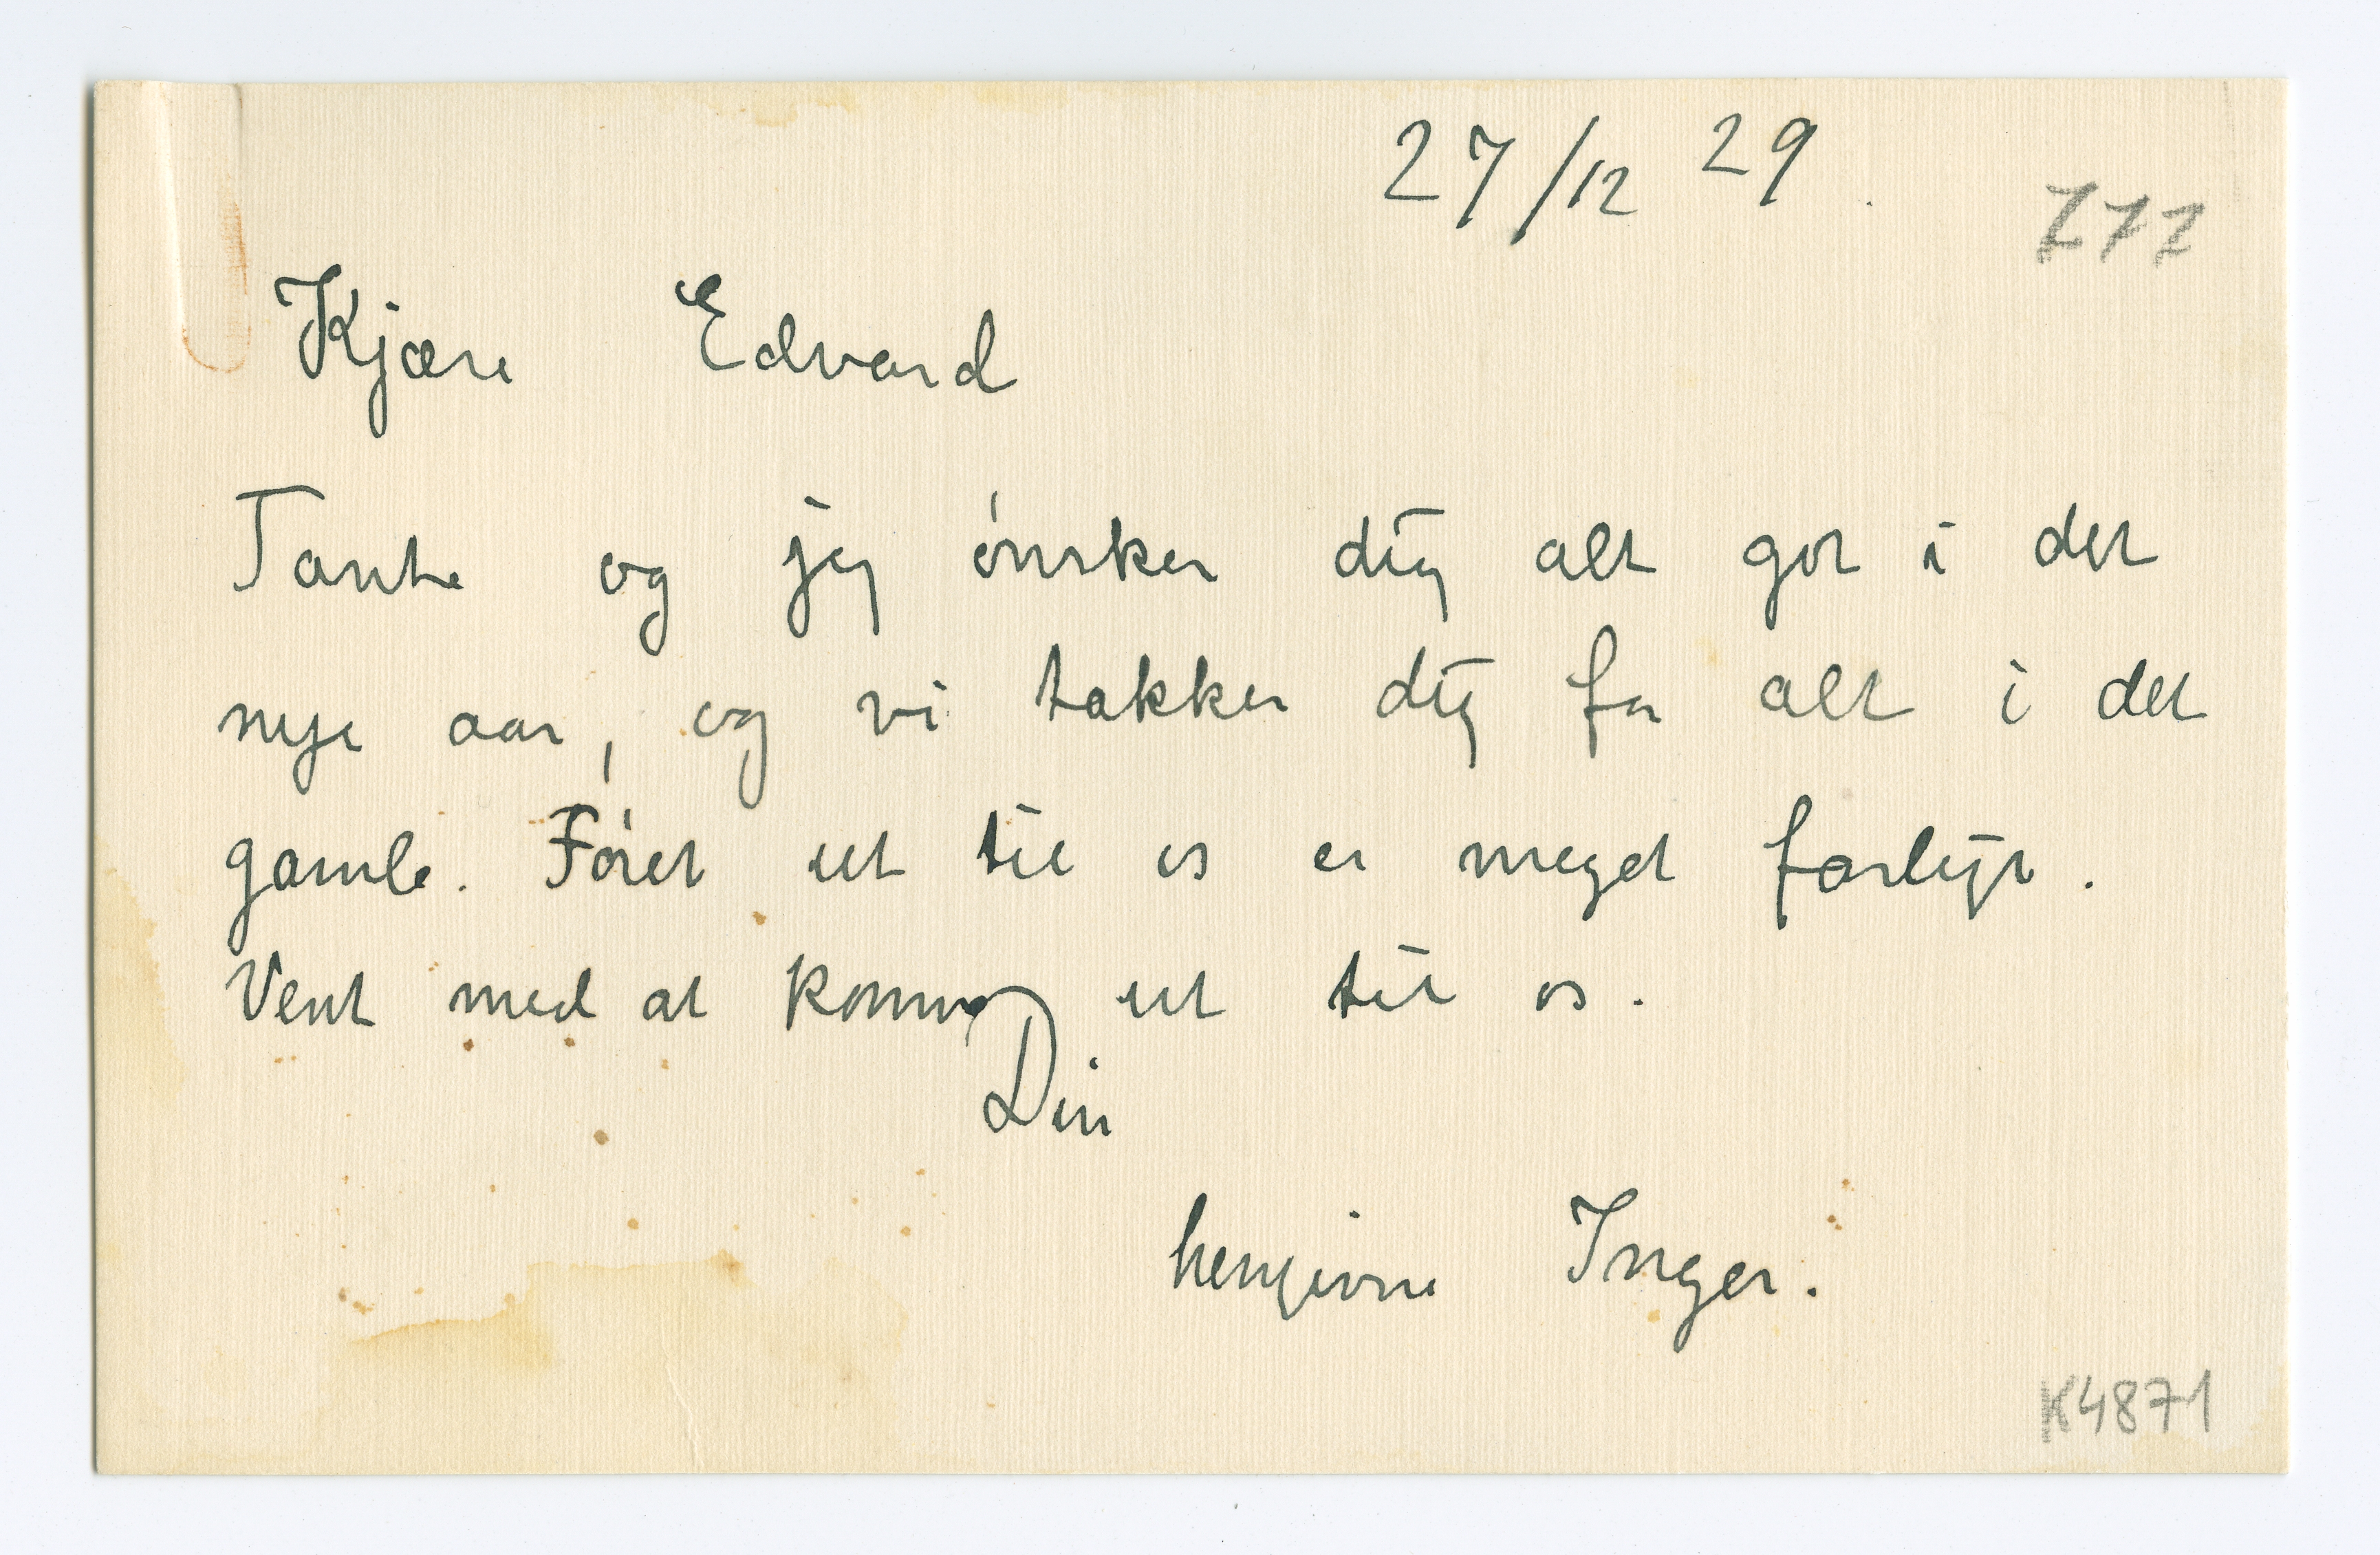 27/12 29.
Kjære Edvard
Tante og jeg ønsker dig alt got i det
nye aar, og vi takker dig for alt i det
gamle. Føret ut til os er meget farligt.
Vent med at komme ut til os.
Din
hengivne Inger.
K4871